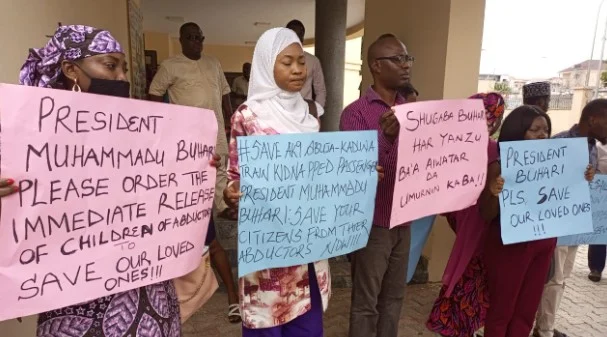 PRESIDENT
MUHAMMADU BUHARI
PLEASE ORDER THE
IMMEDIATE RELEASE
OF CHILDREN OF ABDUCTORS
TO
SAVE OUR LOVED
ONES!!!
#SAVE AK9 ABUJA-KADUNA
TRAIN KIDNAPPED PASSENGER
PRESIDENT MUHAMMADU
BUHARI: SAVE YOUR
CITIZENS FROM THEIR
ABDUCTORS NOW!!!
SHUGABA BUHARI
HAR YANZU
BA'A AIWATAR DA
UMURNIN KA BA!!
PRESIDENT
BUHARI
PLS. SAVE
OUR LOVED ONES
!!!